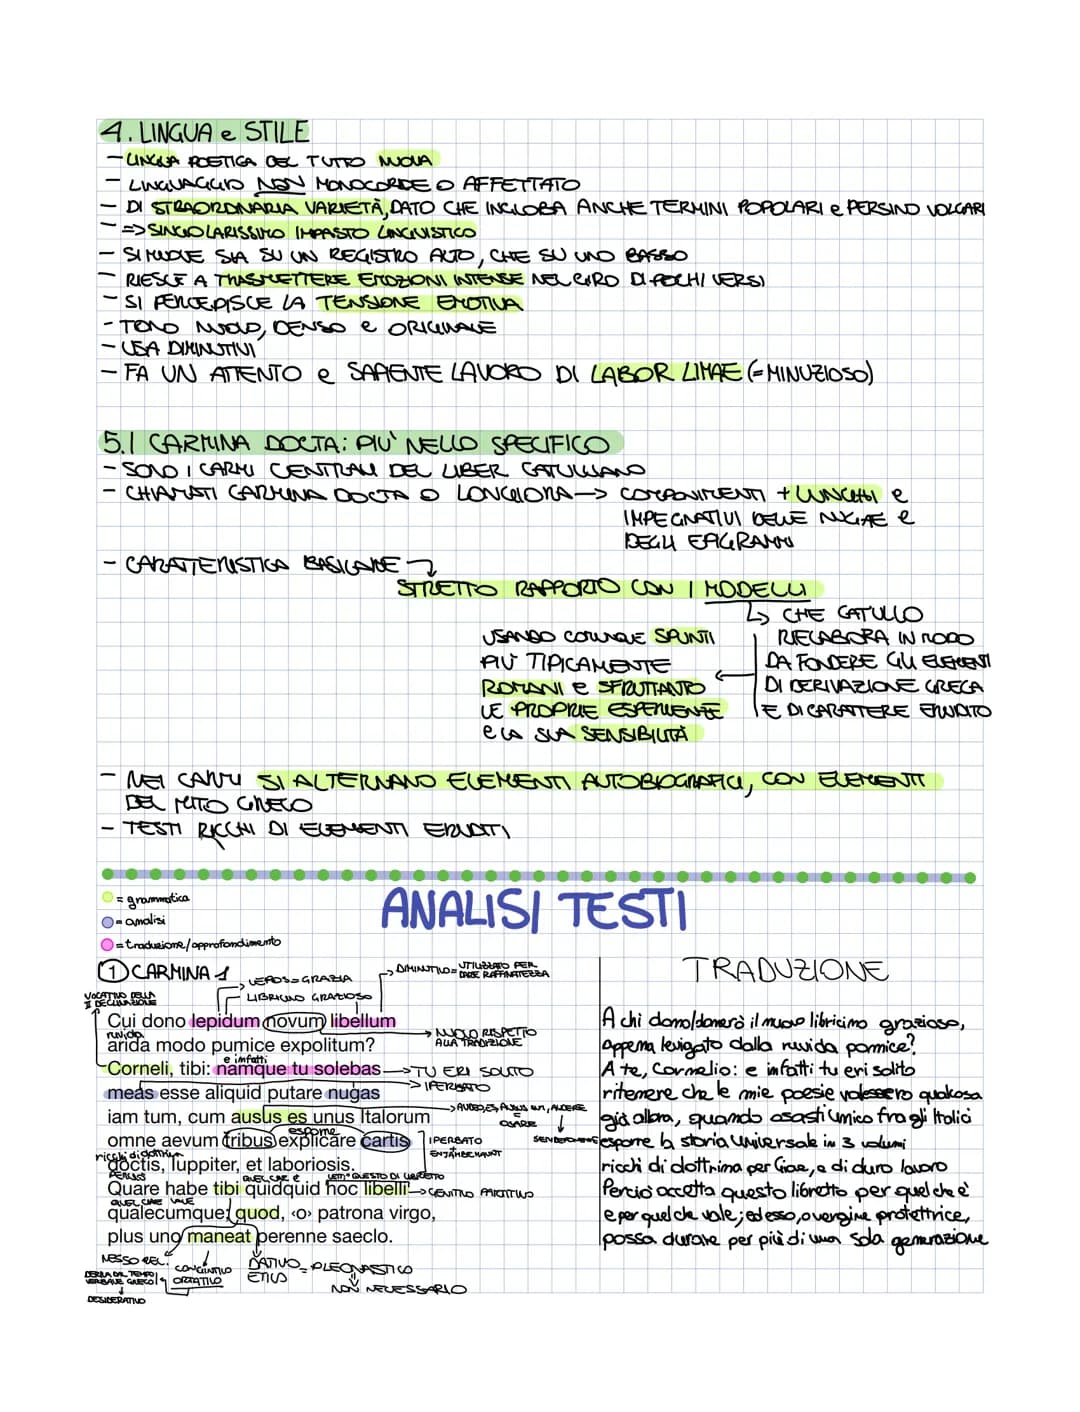 4. LINGUA e STILE
- LINGUA POETICA DEL TUTTO NUOVA
- LINGUAGGIO NON MONOCORDE O AFFETTATO
- DI STRAORDINARIA VARIETÀ, DATO CHE INGLOBA ANCHE TERMINI POPOLARI e PERSINO VOLGARI
- => SINGOLARISSIMO IMPASTO LINGUISTICO
- SI MUOVE SIA SU UN REGISTRO ALTO, CHE SU UNO BASSO
- RIESCE A TRASMETTERE EMOZIONI INTENSE NEL GIRO DI POCHI VERSI
- SI PERCEPISCE LA TENSIONE EMOTIVA
- TONO NUOVO, DENSO e ORIGINALE
- USA DIMINUTIVI
- FA UN ATTENTO e SAPIENTE LAVORO DI LABOR LIMAE (= MINUZIOSO)
5. I CARMINA DOCTA: PIU' NELLO SPECIFICO
- SONO I CARMI CENTRALI DEL LIBER CATULLIANO
- CHIAMATI CARMINA DOCTA O LONGIORA → COMPONIMENTI + LUNGHI e
IMPEGNATIVI DELLE NUGAE e
DEGLI EPIGRAMMI
- CARATTERISTICA BASILARE
STRETTO RAPPORTO CON I MODELLI
CHE CATULLO
RIELABORA IN MODO
DA FONDERE GLI ELEMENTI
DI DERIVAZIONE GRECA
E DI CARATTERE ERUDITO
USANDO COMUNQUE SPUNTI
PIU' TIPICAMENTE
ROMANI e SFRUTTANTO
LE PROPRIE ESPERIENZE
e LA SUA SENSIBILITÀ
- NEI CARMI SI ALTERNANO ELEMENTI AUTOBIOGRAFICI, CON ELEMENTI
DEL MITO GRECO
- TESTI RICCHI DI ELEMENTI ERUDITI
= grammatica
= analisi
= traduzione/approfondimento
ANALISI TESTI
1 CARMINA 1
LEPOS = GRAZIA
LIBRICINO GRAZIOSO
DIMINUTIVO = UTILIZZATO PER
DARE RAFFINATEZZA
VOCATIVO DELLA
II DECLINAZIONE
Cui dono lepidum novum libellum
NUOVO RISPETTO
ALLA TRADIZIONE
ruvida
arida modo pumice expolitum?
e infatti
Corneli, tibi: namque tu solebas → TU ERI SOLITO
IPERBATO
meas esse aliquid putare nugas
iam tum, cum ausus es unus Italorum
AUDEO, ES, AUSUS SUM, AUDERE
=
OSARE
SEMIDEPONENTE
esporre
omne aevum tribus explicare cartis
IPERBATO
ENJAMBEMENT
ricchi di dottrina
doctis, Iuppiter, et laboriosis.
PERCIÒ
QUEL CHE È
LETT: QUESTO DI LIBRETTO
Quare habe tibi quidquid hoc libelli → GENITIVO PARTITIVO
QUEL CHE VALE
qualecumque; quod, ‹o› patrona virgo,
plus uno maneat perenne saeclo.
NESSO REL.
CONGIUNTIVO
OTTATIVO
DERIVA DAL TEMPO
VERBALE GRECO
DESIDERATIVO
DATIVO = PLEONASTICO
ETICO
NON NECESSARIO
TRADUZIONE
A chi dono/donerò il nuovo libricino grazioso,
appena levigato dalla ruvida pomice?
A te, Cornelio: e infatti tu eri solito
ritenere che le mie poesie valessero qualcosa
già allora, quando osasti unico fra gli Italici
esporre la storia universale in 3 volumi
ricchi di dottrina per Giove, e di duro lavoro
Perciò accetta questo libretto per quel che è
e per quel che vale; ed esso, o vergine protettrice,
possa durare per più di una sola generazione